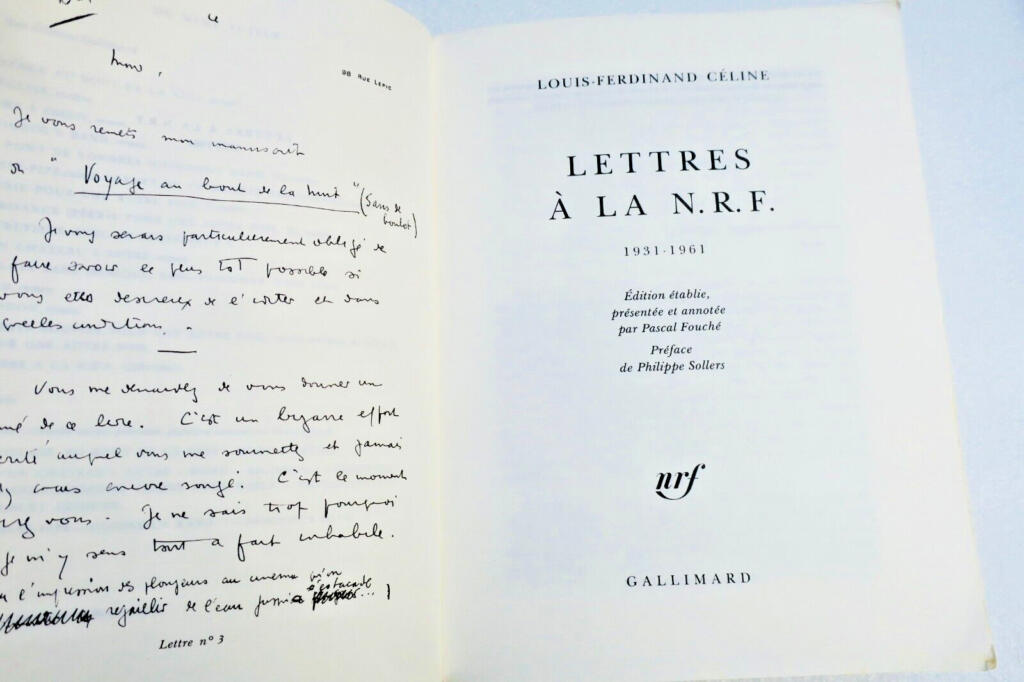 98 RUE LEPIC
Je vous remets mon manuscrit
"Voyage au bout de la nuit" (5 ans de
boulot)
Je vous serais particulièrement obligé de
faire savoir le plus tôt possible si
vous etes desireux de l'éditer et dans
quelles conditions.
Vous me demandez de vous donner un
mé de ce livre. C'est un bizarre effort
auquel vous me soumettez et jamais
encore songé. C'est le moment
vous. Je ne sais trop pourquoi
je m'y sens tout a fait inhabile.
l'impression des plongeurs au cinema qu'on
rejaillir de l'eau jusqu'a l'estacade...)
Lettre n° 3
LOUIS-FERDINAND CÉLINE
LETTRES
À LA N.R.F.
1931-1961
Édition établie,
présentée et annotée
par Pascal Fouché
Préface
de Philippe Sollers
nrf
GALLIMARD